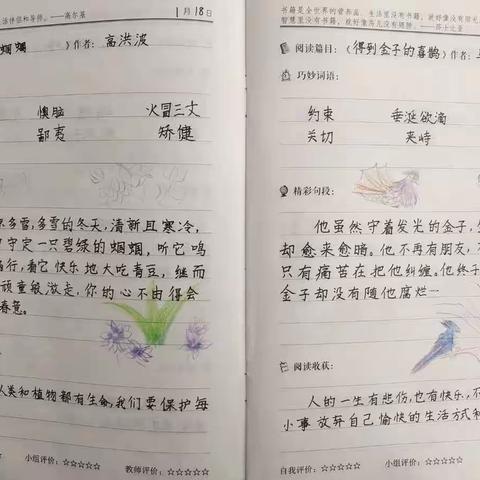 活伴侣和导师。——高尔基
1月18日
蝈蝈
》作者：高洪波
懊恼 火冒三丈
鄙夷 矫健
多雪，多雪的冬天，清新且寒冷，
守定一只碧绿的蝈蝈，听它鸣
行，看它快乐地大吃青豆，继而
顽童般激走，你的心不由得会
春意。
人类和植物都有生命，我们要保护每
小组评价：☆☆☆☆☆ 教师评价：☆☆☆☆☆
书籍是全世界的营养品，生活里没有书籍，就好像没有阳光
智慧里没有书籍，就好像鸟儿没有翅膀。——莎士比亚
阅读篇目：《得到金子的喜鹊》作者：
巧妙词语：
约束 垂涎欲滴
关切 夹峙
精彩句段：
他虽然守着发光的金子，
却愈来愈暗。他不再有朋友，
只有痛苦在把他纠缠。他终于
金子却没有随他腐烂
阅读收获：
人的一生有悲伤，也有快乐，不
小事放弃自己愉快的生活方式和
自我评价：☆☆☆☆☆ 小组评价：☆☆☆☆